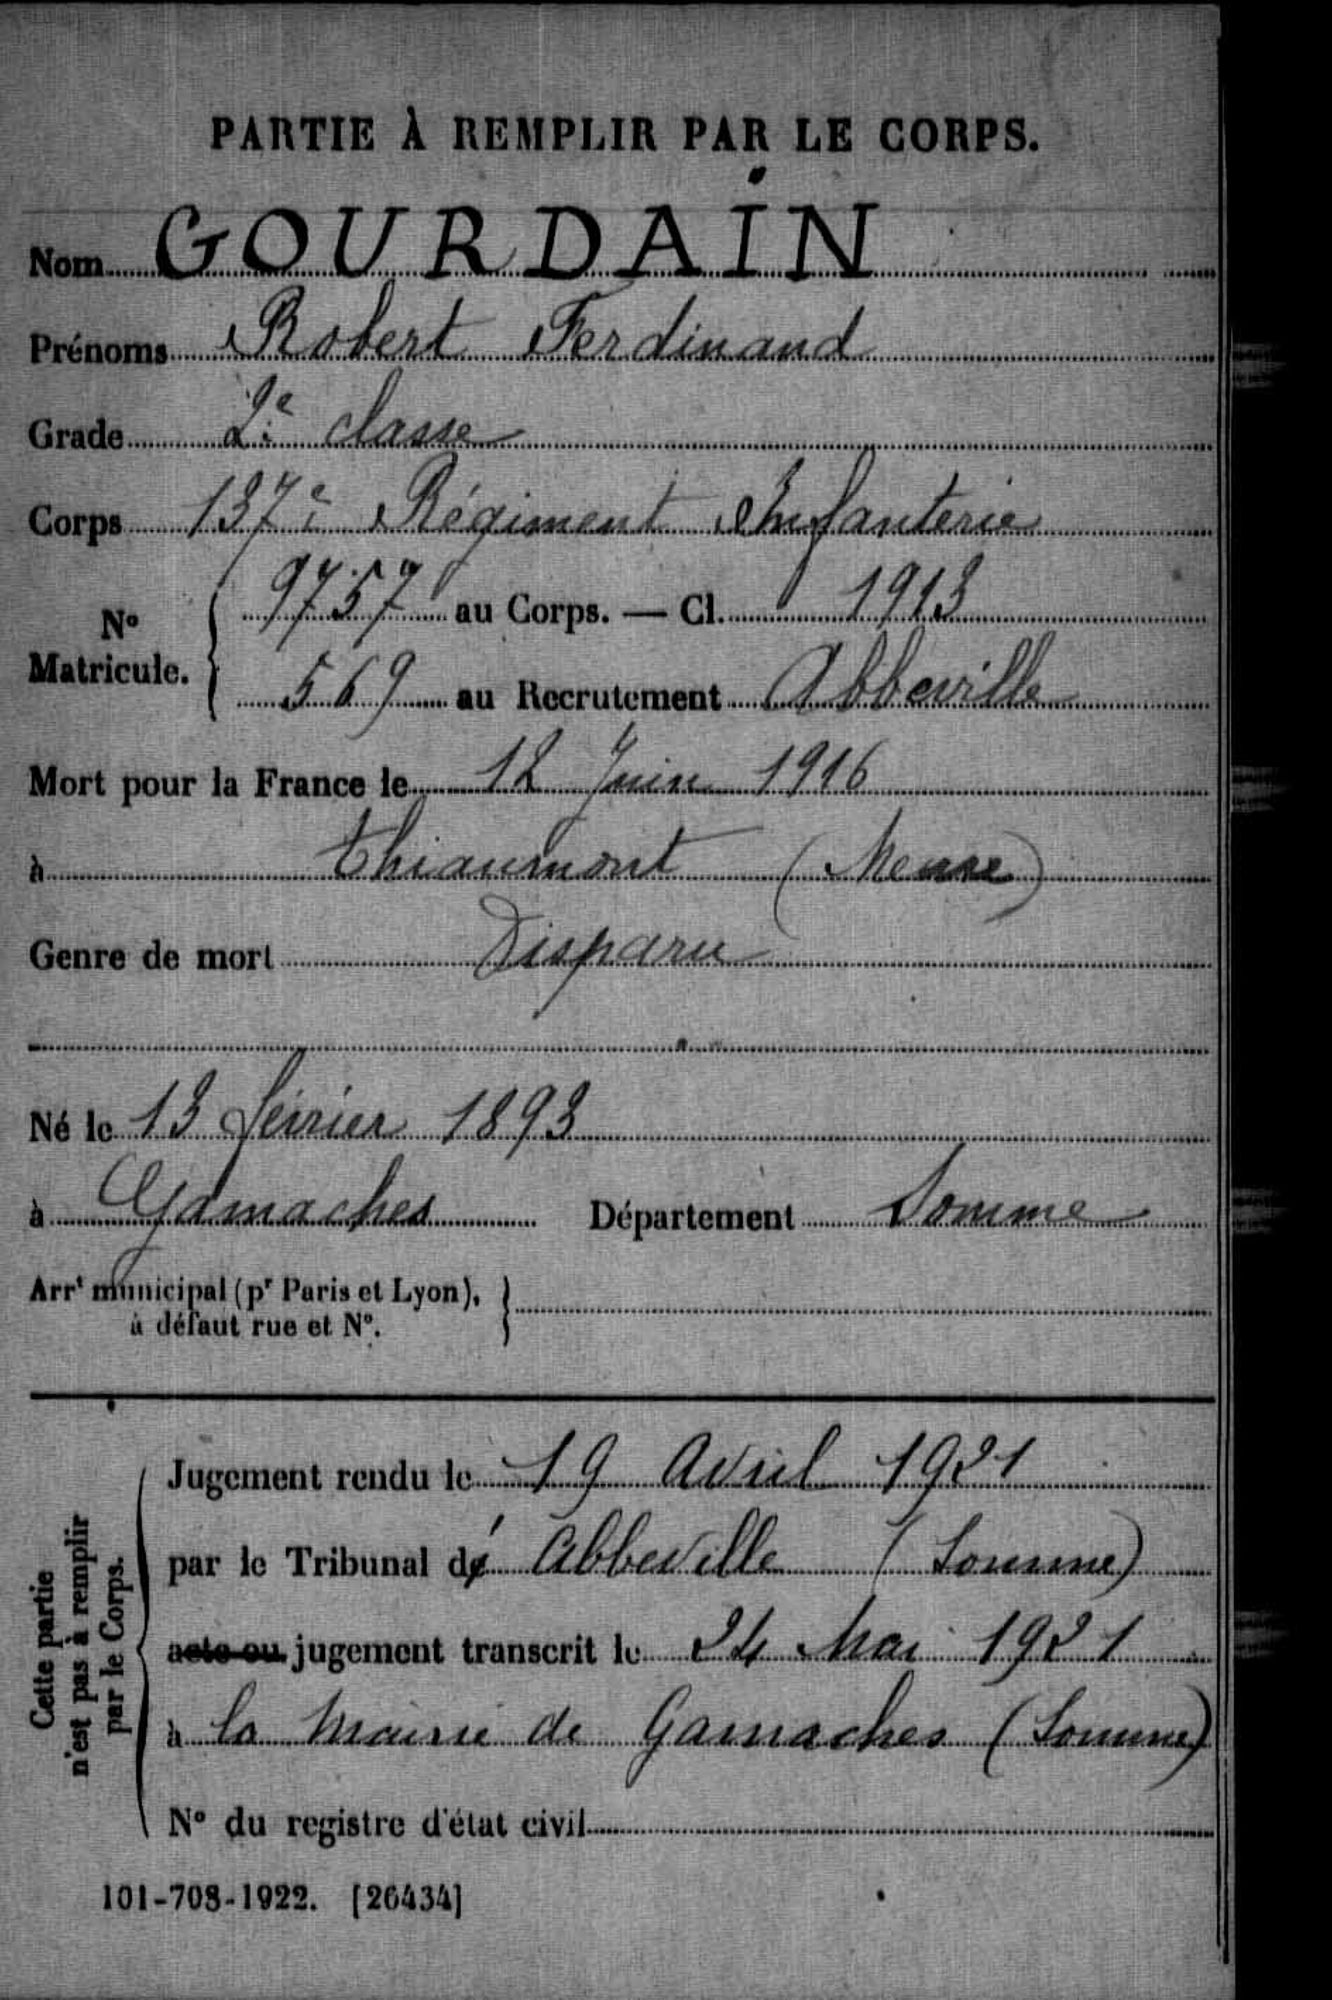 PARTIE À REMPLIR PAR LE CORPS.
Nom GOURDAIN
Prénoms Robert Ferdinand
Grade 2e classe
Corps 137e Régiment Infanterie
N° Matricule. { 9757 au Corps. — Cl. 1913
569 au Recrutement Abbeville
Mort pour la France le 12 Juin 1916
à Thiaumont (Meuse)
Genre de mort Disparu
Né le 13 février 1893
à Gamaches Département Somme
Arrt municipal (pr Paris et Lyon), }
à défaut rue et N°.
Cette partie
n'est pas à remplir
par le Corps.
Jugement rendu le 19 Avril 1921
par le Tribunal d' Abbeville (Somme)
acte ou jugement transcrit le 24 Mai 1921
à la Mairie de Gamaches (Somme)
N° du registre d'état civil
101-708-1922. [26434]